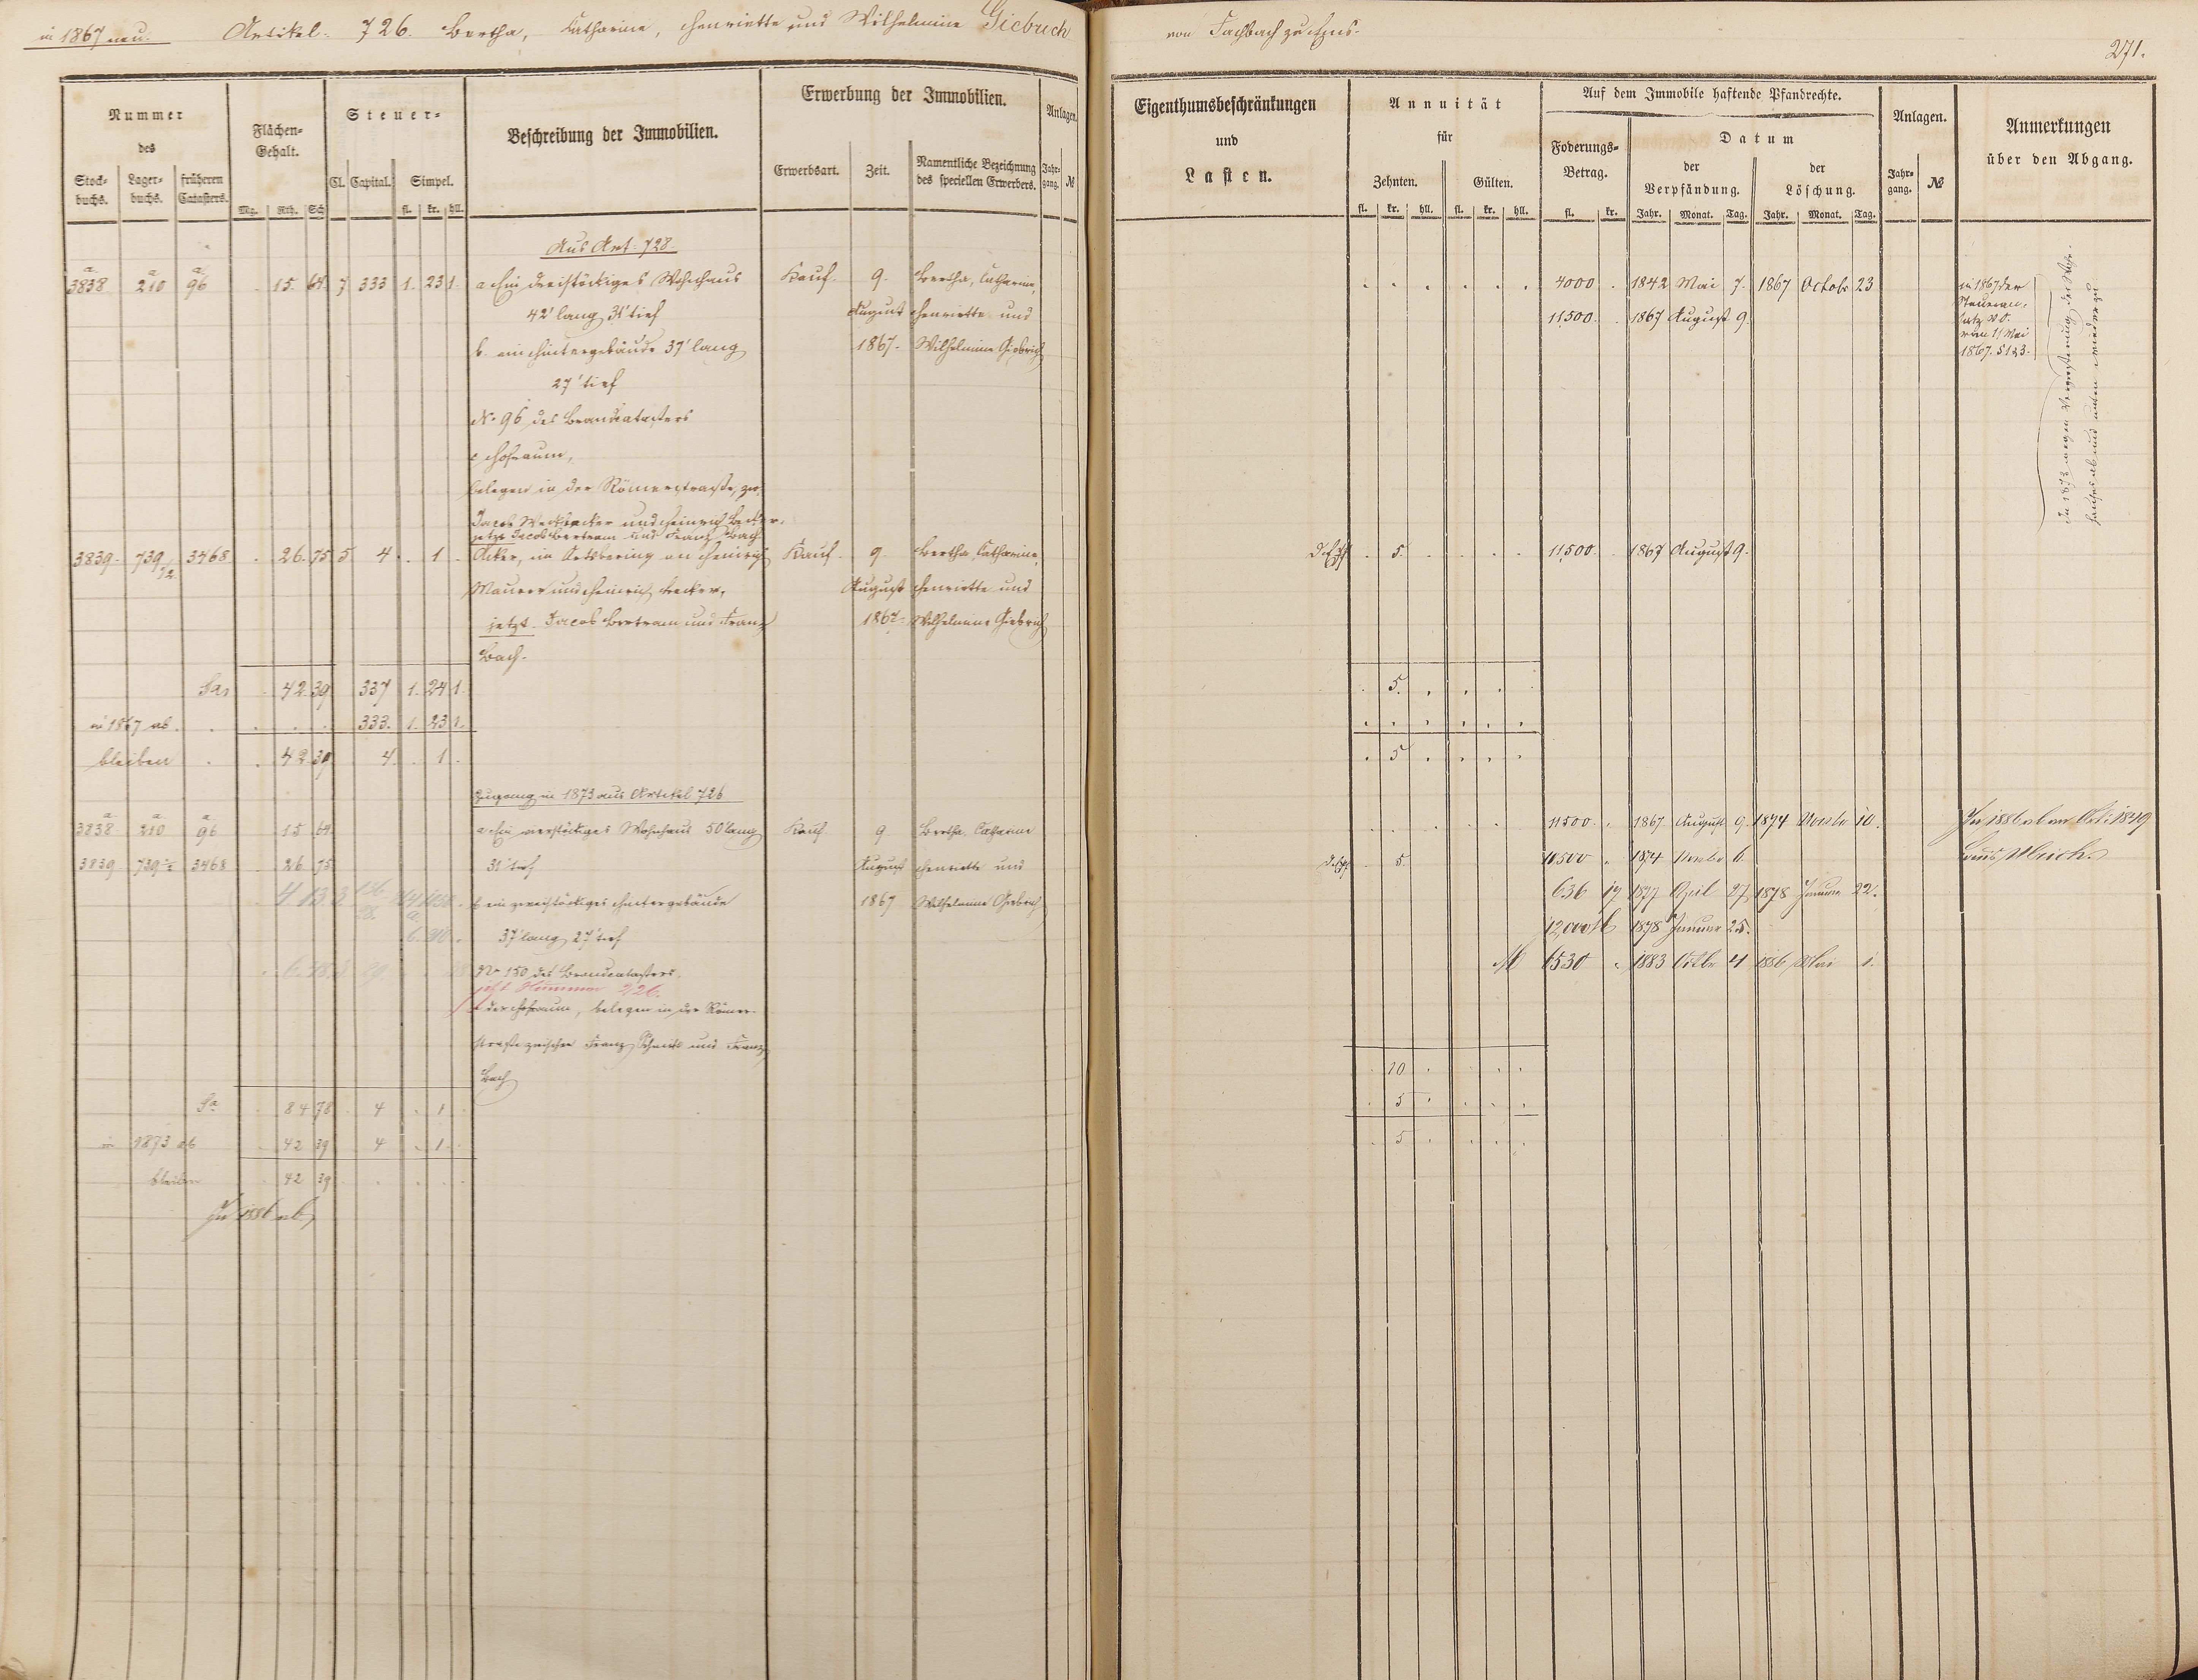 in 1867 neu. Artikel. 726. Bertha, Catharine, Henriette und Wilhelmine Giebrich von Fachbach zu Ems.
271.
Nummer des
Stock-buchs. Lager-buchs. früheren Catasters.
Flächen-Gehalt.
Mg. Rth. Sch.
Steuer-
Cl. Capital. Simpel.
fl. kr. hll.
Beschreibung der Immobilien.
Erwerbung der Immobilien.
Erwerbsart. Zeit. Namentliche Bezeichnung des speciellen Erwerbers.
Anlagen.
Jahr-gang. №
Eigenthumsbeschränkungen und Lasten.
Annuität für
Zehnten. Gülten.
fl. kr. hll. fl. kr. hll.
Auf dem Immobile haftende Pfandrechte.
Foderungs-Betrag.
fl. kr.
Datum
der Verpfändung. der Löschung.
Jahr. Monat. Tag. Jahr. Monat. Tag.
Anlagen.
Jahr-gang. №
Anmerkungen über den Abgang.
Aus Art. 728.
3838 a 210 a 96 a . 15. 64. 7 333 1. 23 1. a Ein dreistöckiges Wohnhaus Kauf. 9. Bertha, Catharine, 4000 . 1842 Mai 7. 1867 Octobr 23
42' lang 31' tief August Henriette und 11,500. . 1867 August 9.
b. ein Hintergebäude 37' lang 1867. Wilhelmine Giebrich
27' tief
No 96 des Brandcatasters
c Hofraum,
belegen in der Römerstraße, zw.
Jacob Weckbecker und Heinrich Becker.
jetzt Jacob Bertram und Franz Bach
in 1867 der
vom 1/ Mai
1867. § 123.
3839. 739 1/2 3468 . 26. 75 5 4 . . 1 . Acker, im Ortsbering an Heinrich Kauf. 9. Bertha, Catharine, . 5. . . . . 11,500. . 1867 August 9.
Maurer und Heinrich Becker, August Henriette und
jetzt Jacob Bertram und Franz 1867. Wilhelmine Giebrich
Bach.
Sa . 42. 39 337 1. 24 1. . 5. . . . .
in 1867 ab. . . . . 333. 1. 23 1. . . . . . .
bleiben . . 42 39 4. . 1 . . 5 . . . .
Zugang in 1873 aus Artikel 726
3838 a 210 a 96 a 15 64. a Ein vierstöckiges Wohnhaus 50' lang Kauf 9 Bertha, Catharine 11500. . 1867 August 9. 1874 Novbr 10.
3839 739 1/2 3468 . 26 75 31' tief August Henriette und . 5 10500 . 1874 Novbr 6.
b ein zweistöckiges Hintergebäude 1867 Wilhelmine Giebrich 636 17 1877 April 27 1878 Januar 22.
37' lang 27' tief 12,000 M 1878 Januar 25.
No 150 des Brandcatasters. M 6530 . 1883 Octbr 4 1886 Mai 1.
jetzt Nummer 2/26.
c der Hofraum, belegen in der Römer-
straße zwischen Franz Schmitt und Franz
Bach
In 1886 ab an Art. 1849
Sa . 84 78 . 4 . 1 . . 10 . . . .
in 1873 ab . 42 39 4 . 1 . . 5 . . . .
bleiben . 42 39 . . . . . 5 . . . .
In 1886 ab